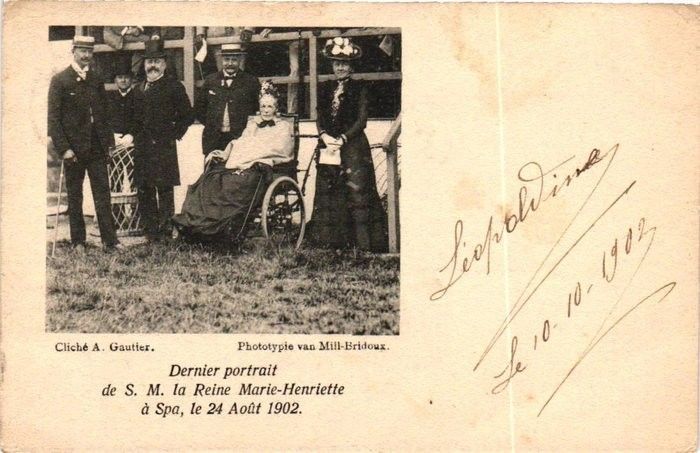 Cliché A. Gautier.
Phototypie van Mill-Bridoux.
Dernier portrait
de S. M. la Reine Marie-Henriette
à Spa, le 24 Août 1902.
Léopoldine
Le 10-10-1902